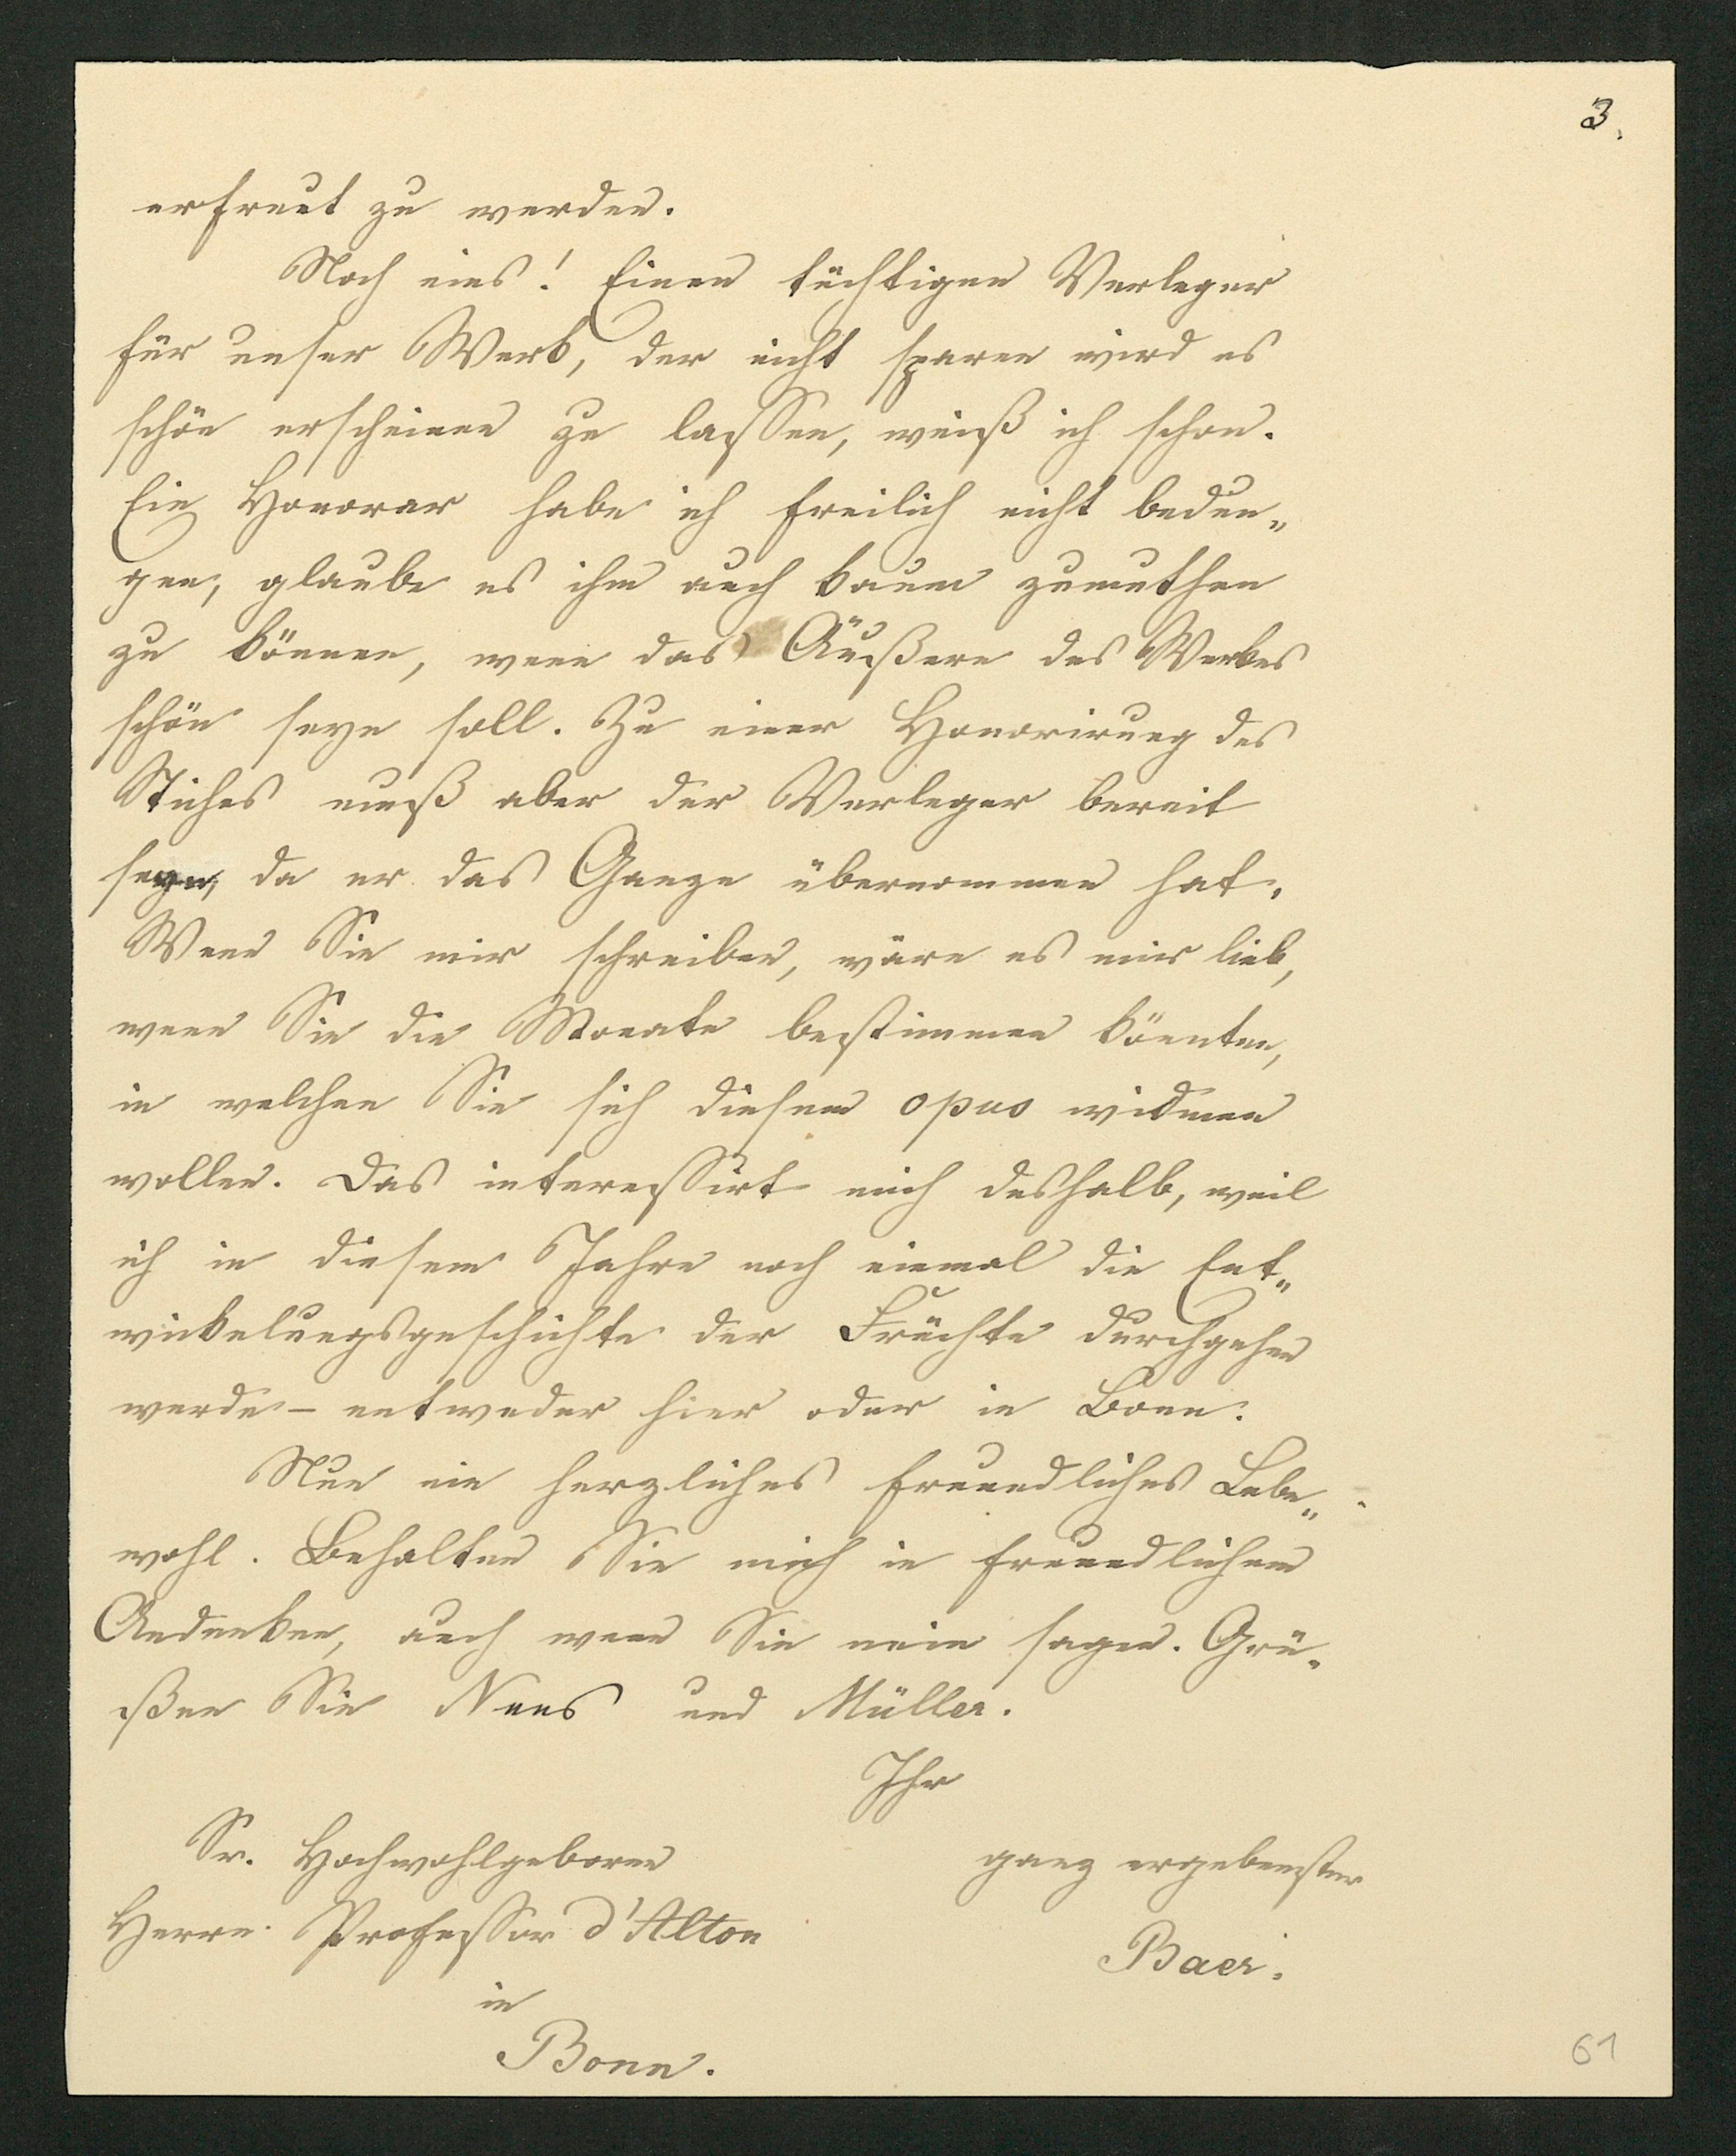 3.
erfreut zu werden.
Noch eins! Einen tüchtigen Verleger
für unser Werk, der nicht sparen wird es
schön erscheinen zu lassen, weiß ich schon.
Ein Honorar habe ich freilich nicht bedun„
gen, glaube es ihm auch kaum zumuthen
zu können, wenn das Äußere des Werkes
schön seyn soll. Zu einer Honorirung des
Stiches muß aber der Verleger bereit
seyn, da er das Ganze übernommen hat.
Wenn Sie mir schreiben, wäre es mir lieb,
wenn Sie die Monate bestimmen könnten,
in welchen Sie sich diesem opus widmen
wollen. Das interessirt mich deshalb, weil
ich in diesem Jahre noch einmal die Ent„
wickelungsgeschichte der Früchte durchgehen
werde – entweder hier oder in Bonn.
Nun ein herzliches freundliches Lebe„
wohl. Behalten Sie mich in freundlichem
Andenken, auch wenn Sie nein sagen. Grü„
ßen Sie Nees und Müller.
Ihr
Sr. Hochwohlgeboren
ganz ergebenster
Herrn Professor d'Alton
Baer.
in
Bonn.
61